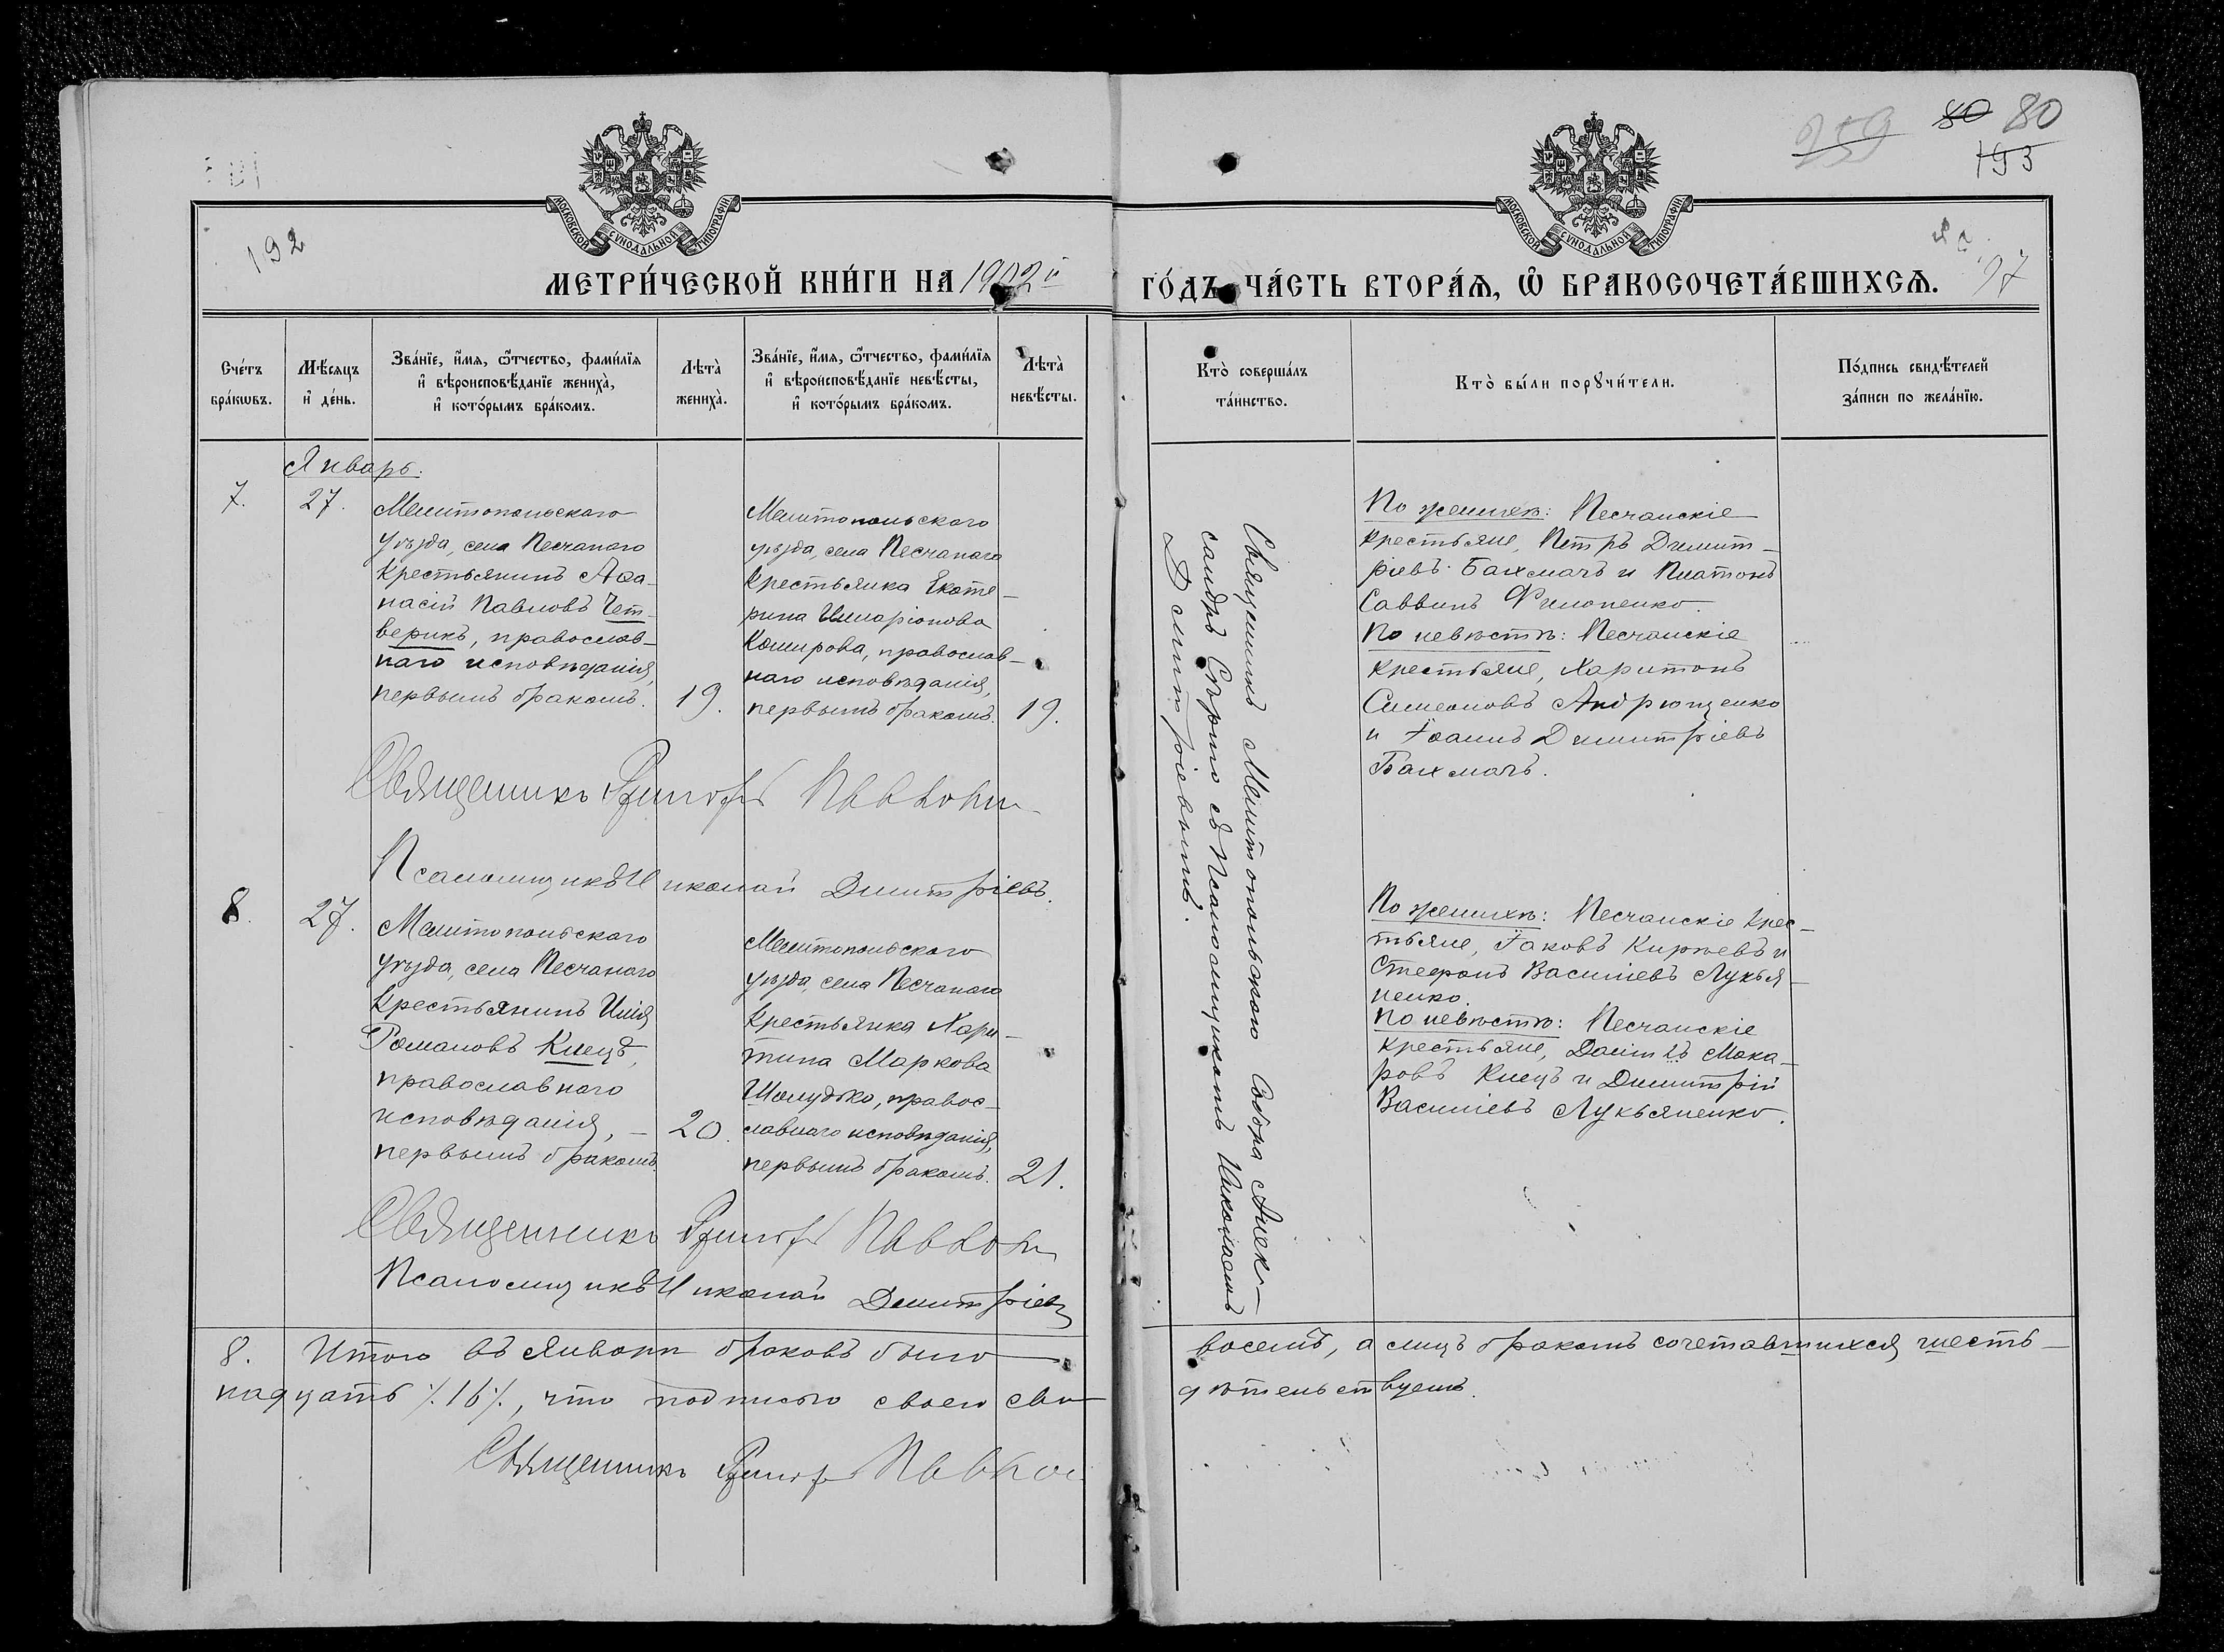 192
259 80 80
193
97
МОСКОВСКОЙ СУНОДАЛЬНОЙ ТИПОГРАФІИ
МОСКОВСКОЙ СУНОДАЛЬНОЙ ТИПОГРАФІИ
МЕТРИ́ЧЕСКОЙ КНИ́ГИ НА 1902й ГО́ДЪ ЧА́СТЬ ВТОРА́Ѧ, Ѽ БРАКОСОЧЕТА́ВШИХСѦ.
Сче́тъ
бра́кѡвъ.
Мѣ́сяцъ
и҆ де́нь.
Зва́нїе, и҆́мѧ, ѻ҆́тчество, фами́лїѧ
и҆ вѣроисповѣ́данїе жениха̀,
и҆ кото́рымъ бра́комъ.
Лѣта̀
жениха̀.
Зва́нїе, и҆́мѧ, ѻ҆́тчество, фами́лїѧ
и҆ вѣроисповѣ́данїе невѣ́сты,
и҆ кото́рымъ бра́комъ.
Лѣта̀
невѣ́сты.
Кто̀ соверша́лъ
та́инство.
Кто̀ бы́ли порꙋчи́тели.
По́дпись свидѣ́телей
за́писи по жела́нїю.
Январь.
7.
27.
Мелитопольскаго
уѣзда, села Песчанаго
крестьянинъ Аѳа-
насій Павловъ Чет-
верикъ, православ-
наго исповѣданія,
первымъ бракомъ.
19.
Мелитопольскаго
уѣзда, села Песчанаго
крестьянка Екате-
рина Иларіонова
Комирова, православ-
наго исповѣданія,
первымъ бракомъ.
19.
Священникъ Мелитопольскаго Собора Алек-
сандръ Сѣрко съ Псаломщикомъ Николаемъ
Димитріевымъ.
По женихѣ: Песчанскіе
крестьяне, Петръ Димит-
ріевъ Бахмачъ и Платонъ
Саввинъ Филоненко.
По невѣстѣ: Песчанскіе
крестьяне, Харитонъ
Симеоновъ Андрющенко
и Іоаннъ Димитріевъ
Бахмачъ.
Священникъ Григорій
Псаломщикъ Николай Димитріевъ.
8.
27.
Мелитопольскаго
уѣзда, села Песчанаго
крестьянинъ Илія
Романовъ Клецъ,
православнаго
исповѣданія, –
первымъ бракомъ.
20.
Мелитопольскаго
уѣзда, села Песчанаго
крестьянка Хари-
тина Маркова
Шолудько, правос-
лавнаго исповѣданія,
первымъ бракомъ.
21.
По женихѣ: Песчанскіе крес-
тьяне, Іаковъ Киріевъ и
Стефанъ Василіевъ Лукья-
ненко.
По невѣстѣ: Песчанскіе
крестьяне, Даніилъ Мака-
ровъ Клецъ и Димитрій
Василіевъ Лукьяненко.
Священникъ Григорій
Псаломщикъ Николай Димитріевъ
8. Итого въ Январѣ браковъ было – восемь, а лицъ бракомъ сочетавшихся шесть-
надцать ./.16./., что подписью своею сви-дѣтельствуемъ.
Священникъ Григорій